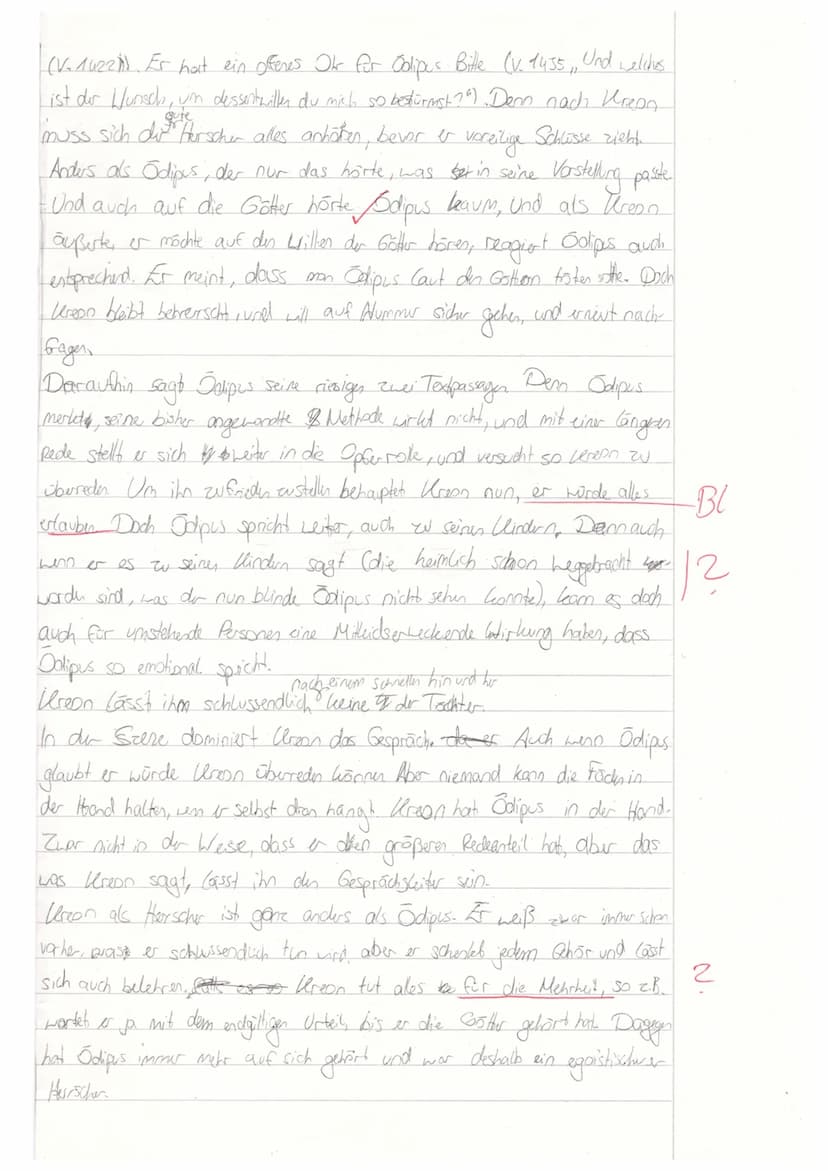 (V. 1422f). Er hat ein offenes Ohr für Ödipus Bitte (V. 1435 „Und welches
ist der Wunsch, um dessentwillen du mich so bestürmst?"). Denn nach Kreon
muss sich der gute Herrscher alles anhören, bevor er voreilige Schlüsse zieht.
Anders als Ödipus, der nur das hörte, was in seine Vorstellung passte.
Und auch auf die Götter hörte Ödipus kaum, und als Kreon
äußerte, er möchte auf den Willen der Götter hören, reagiert Ödipus auch
entsprechend. Er meint, dass man Ödipus laut den Göttern töten sollte. Doch
Kreon bleibt beherrscht, und will auf Nummer sicher gehen, und erneut nach-
fragen.
Daraufhin sagt Ödipus seine riesigen zwei Textpassagen. Denn Ödipus
merkt, seine bisher angewandte Methode wirkt nicht, und mit einer längeren
Rede stellt er sich weiter in die Opferrolle, und versucht so Kreon zu
überreden. Um ihn zufrieden zustellen behauptet Kreon nun, er würde alles
Bl
erlauben. Doch Ödipus spricht weiter, auch zu seinen Kindern. Denn auch
wenn er es zu seinen Kindern sagt (die heimlich schon weggebracht
?
worden sind, was der nun blinde Ödipus nicht sehen konnte), kam es doch
auch für umstehende Personen eine Mitleidserweckende Wirkung haben, dass
Ödipus so emotional spricht.
Kreon lässt ihm schlussendlich nach einem schnellen hin und her keine der Töchter.
In der Szene dominiert Kreon das Gespräch. Auch wenn Ödipus
glaubt er würde Kreon überreden können. Aber niemand kann die Fäden in
der Hand halten, wenn er selbst dran hängt. Kreon hat Ödipus in der Hand.
Zwar nicht in der Weise, dass er den größeren Redeanteil hat, aber das
was Kreon sagt, lässt ihn den Gesprächsleiter sein.
Kreon als Herrscher ist ganz anders als Ödipus. Er weiß zwar immer schon
vorher, was er schlussendlich tun wird, aber er schenkt jedem Gehör und lässt
sich auch belehren. Kreon tut alles für die Mehrheit, so z.B.
?
wartet er ja mit dem endgültigen Urteil, bis er die Götter gehört hat. Dagegen
hat Ödipus immer mehr auf sich gehört und war deshalb ein egoistischer
Herrscher.